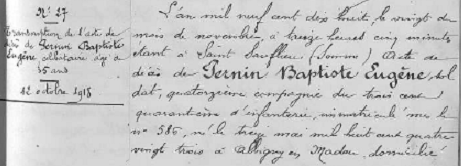 N° 27
Transcription de l'acte de
décès de Pernin Baptiste
Eugène célibataire âgé de
35 ans
12 octobre 1918
L'an mil neuf cent dix huit, le vingt du
mois de novembre, à treize heures cinq minutes
étant à Saint (Somme) Acte de
décès de Pernin Baptiste Eugène, sol
dat, quatorzième compagnie du trois cent
quarantième d'infanterie, immatriculé sous le
n° 586, né le treize mai mil huit cent quatre
vingt trois à en Madon, domicilié